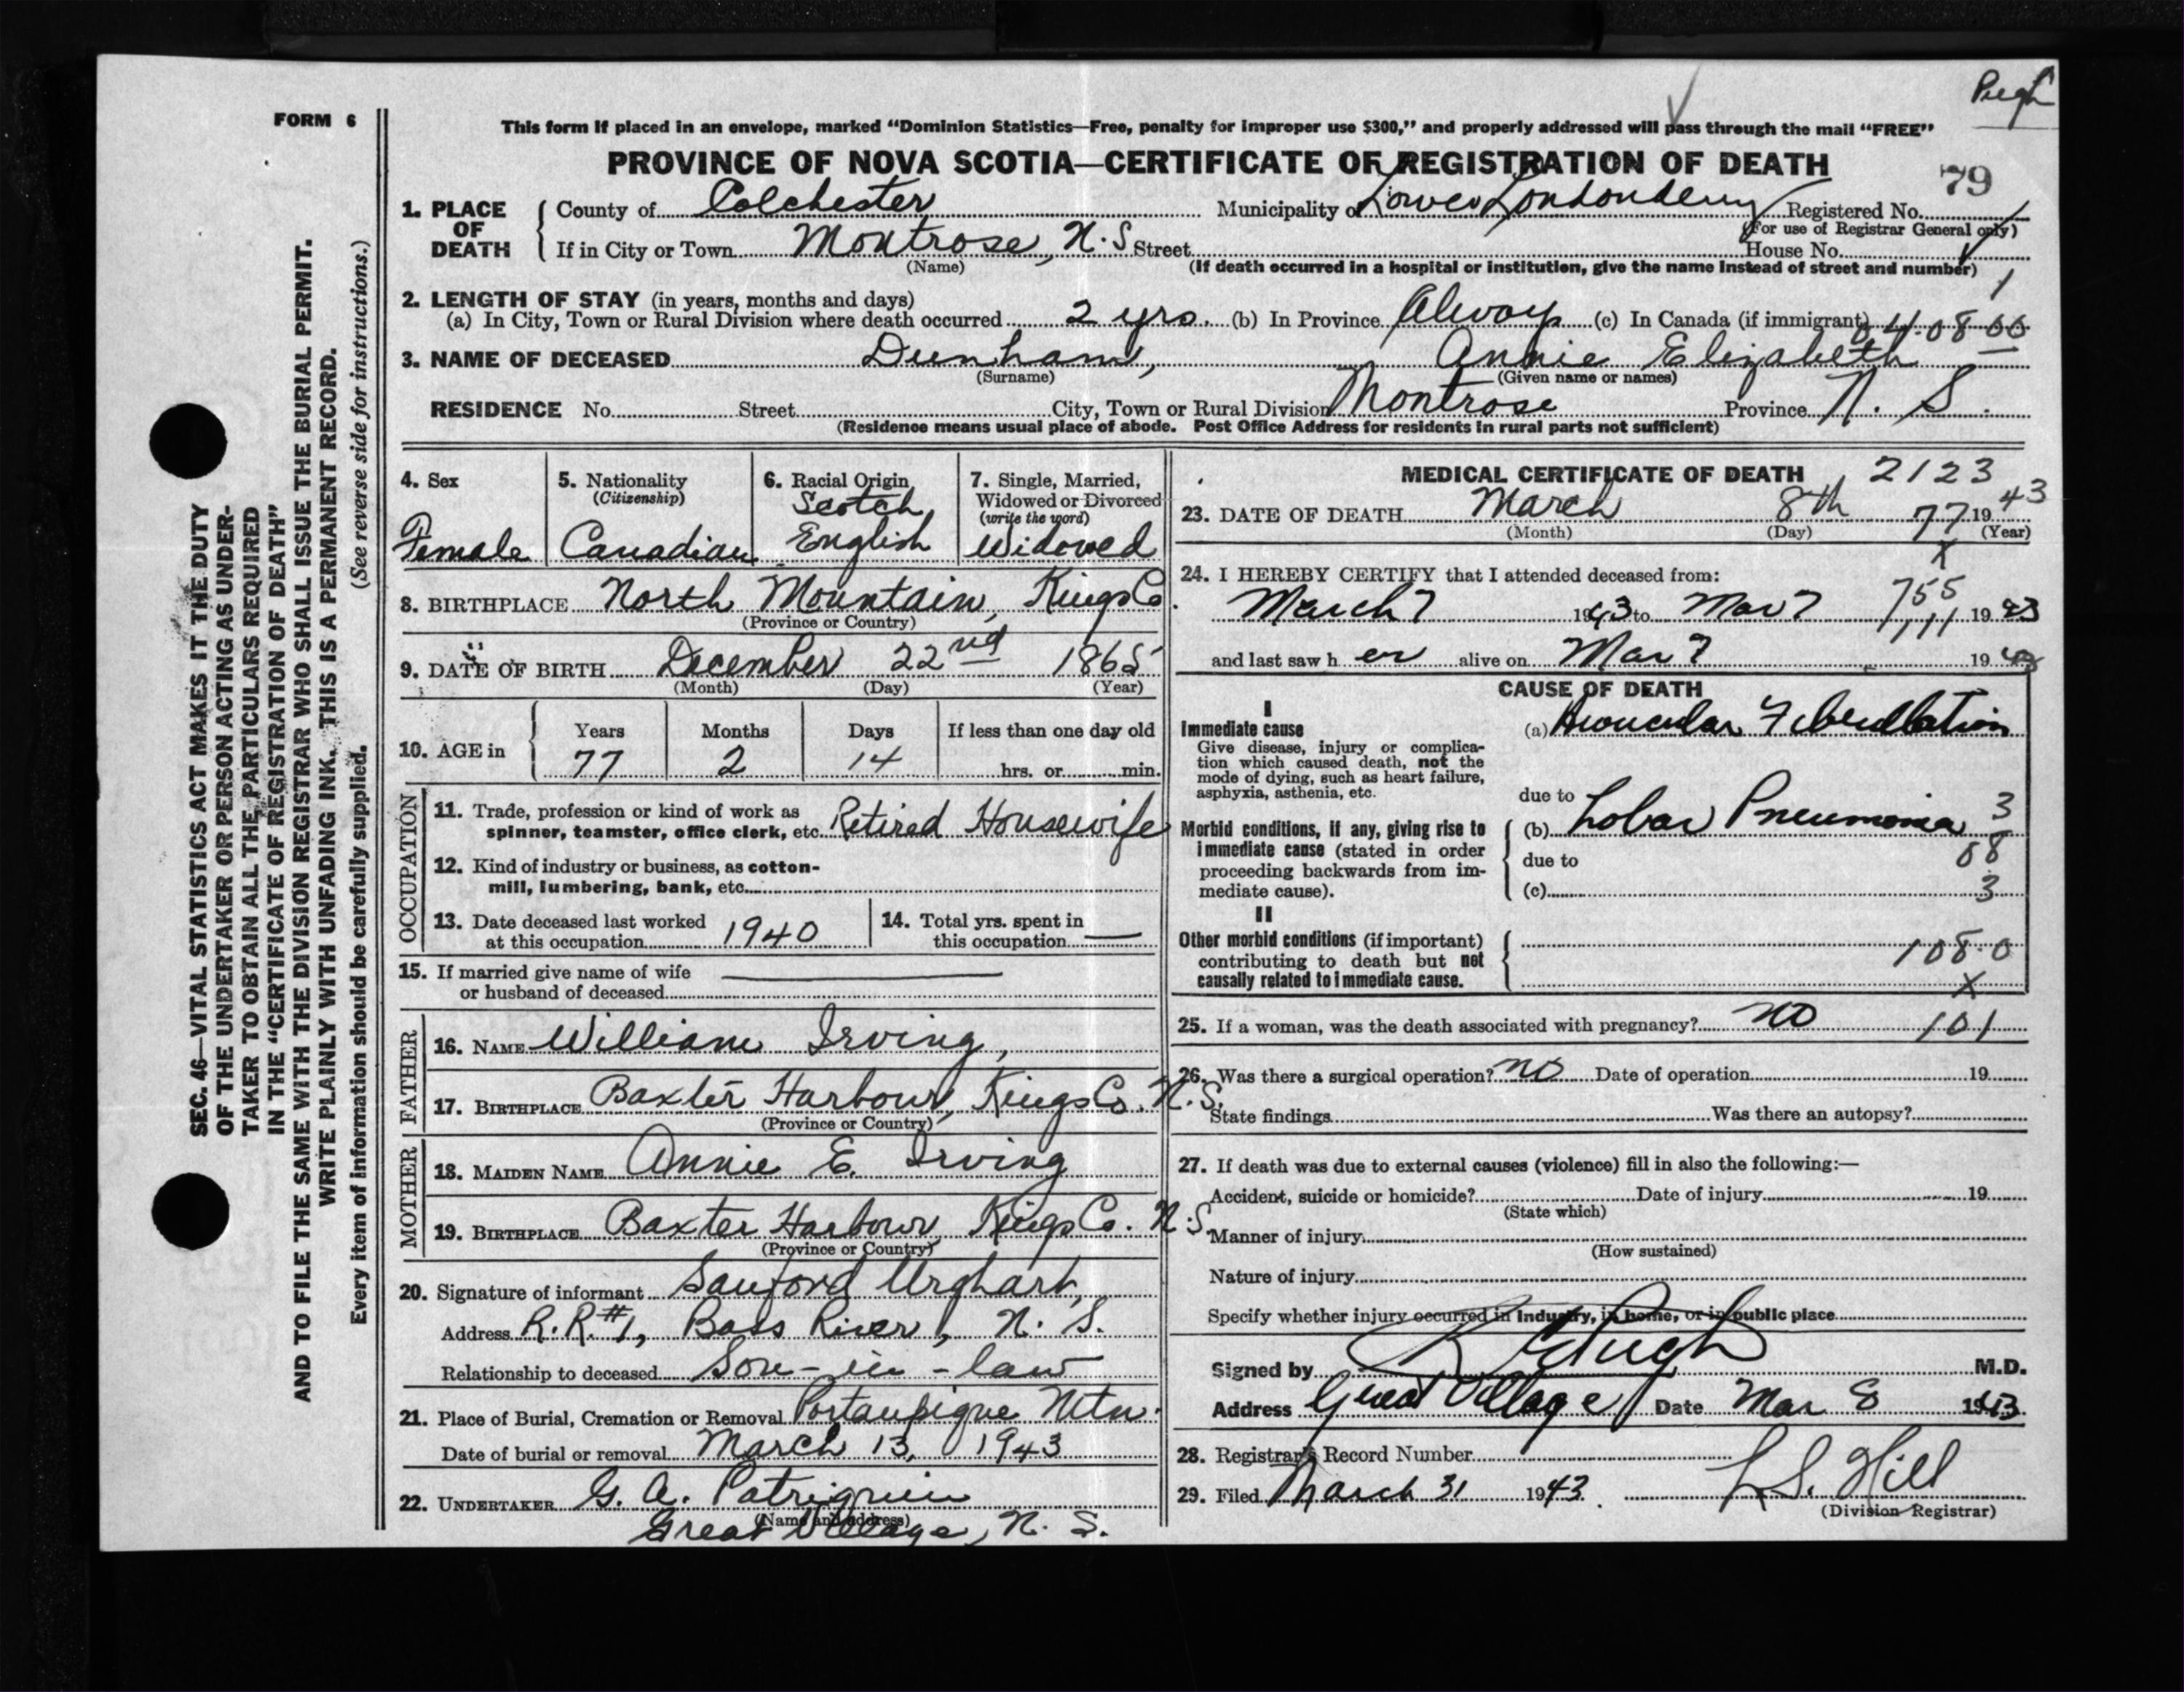 Pugh
FORM 6
This form if placed in an envelope, marked "Dominion Statistics—Free, penalty for improper use $300," and properly addressed will pass through the mail "FREE"
PROVINCE OF NOVA SCOTIA—CERTIFICATE OF REGISTRATION OF DEATH
79
1. PLACE OF DEATH County of Colchester Municipality of Lower Londonderry Registered No.
(For use of Registrar General only)
If in City or Town Montrose, N.S Street House No.
(Name) (If death occurred in a hospital or institution, give the name instead of street and number)
1
2. LENGTH OF STAY (in years, months and days)
(a) In City, Town or Rural Division where death occurred 2 yrs. (b) In Province Always (c) In Canada (if immigrant) 04.08 00
3. NAME OF DECEASED Dunham, Annie Elizabeth
(Surname) (Given name or names)
RESIDENCE No. Street City, Town or Rural Division Montrose Province N. S.
(Residence means usual place of abode. Post Office Address for residents in rural parts not sufficient)
4. Sex Female
5. Nationality (Citizenship) Canadian
6. Racial Origin Scotch, English
7. Single, Married, Widowed or Divorced (write the word) Widowed
8. BIRTHPLACE North Mountain, Kings Co.
(Province or Country)
9. DATE OF BIRTH December 22nd 1865
(Month) (Day) (Year)
10. AGE in Years Months Days If less than one day old
77 2 14 hrs. or min.
OCCUPATION
11. Trade, profession or kind of work as
spinner, teamster, office clerk, etc. Retired Housewife
12. Kind of industry or business, as cotton-
mill, lumbering, bank, etc.
13. Date deceased last worked
at this occupation 1940
14. Total yrs. spent in
this occupation —
15. If married give name of wife
or husband of deceased
FATHER
16. NAME William Irving,
17. BIRTHPLACE Baxter Harbour, Kings Co. N.S.
(Province or Country)
MOTHER
18. MAIDEN NAME Annie E. Irving
19. BIRTHPLACE Baxter Harbour, Kings Co. N.S.
(Province or Country)
20. Signature of informant Sanford Urghart,
Address R.R.#1, Bass River, N. S.
Relationship to deceased Son-in-law
21. Place of Burial, Cremation or Removal Portaupique Mtn.
Date of burial or removal March 13, 1943
22. UNDERTAKER G. A. Patriquin
(Name and address)
Great Village, N. S.
MEDICAL CERTIFICATE OF DEATH 2123
23. DATE OF DEATH March 8th 77 1943
(Month) (Day) (Year)
x
24. I HEREBY CERTIFY that I attended deceased from:
755
March 7 1943 to Mar 7 1943
and last saw her alive on Mar 7 1943
CAUSE OF DEATH
I
Immediate cause (a) Auricular Fibrillation
Give disease, injury or complica-
tion which caused death, not the
mode of dying, such as heart failure,
asphyxia, asthenia, etc.
due to
Morbid conditions, if any, giving rise to (b) Lobar Pneumonia 3
immediate cause (stated in order
proceeding backwards from im- due to 08
mediate cause). (c) 3
II
Other morbid conditions (if important)
contributing to death but not 108.0
causally related to immediate cause. x
25. If a woman, was the death associated with pregnancy? no 101
26. Was there a surgical operation? no Date of operation 19
State findings Was there an autopsy?
27. If death was due to external causes (violence) fill in also the following:—
Accident, suicide or homicide? Date of injury 19
(State which)
Manner of injury
(How sustained)
Nature of injury
Specify whether injury occurred in Industry, in home, or in public place
Signed by Pugh M.D.
Address Great Village Date Mar 8 1943
28. Registrar's Record Number
29. Filed March 31 1943. L S. Hill
(Division Registrar)
SEC. 46—VITAL STATISTICS ACT MAKES IT THE DUTY
OF THE UNDERTAKER OR PERSON ACTING AS UNDER-
TAKER TO OBTAIN ALL THE PARTICULARS REQUIRED
IN THE "CERTIFICATE OF REGISTRATION OF DEATH"
AND TO FILE THE SAME WITH THE DIVISION REGISTRAR WHO SHALL ISSUE THE BURIAL PERMIT.
WRITE PLAINLY WITH UNFADING INK. THIS IS A PERMANENT RECORD.
Every item of information should be carefully supplied. (See reverse side for instructions.)